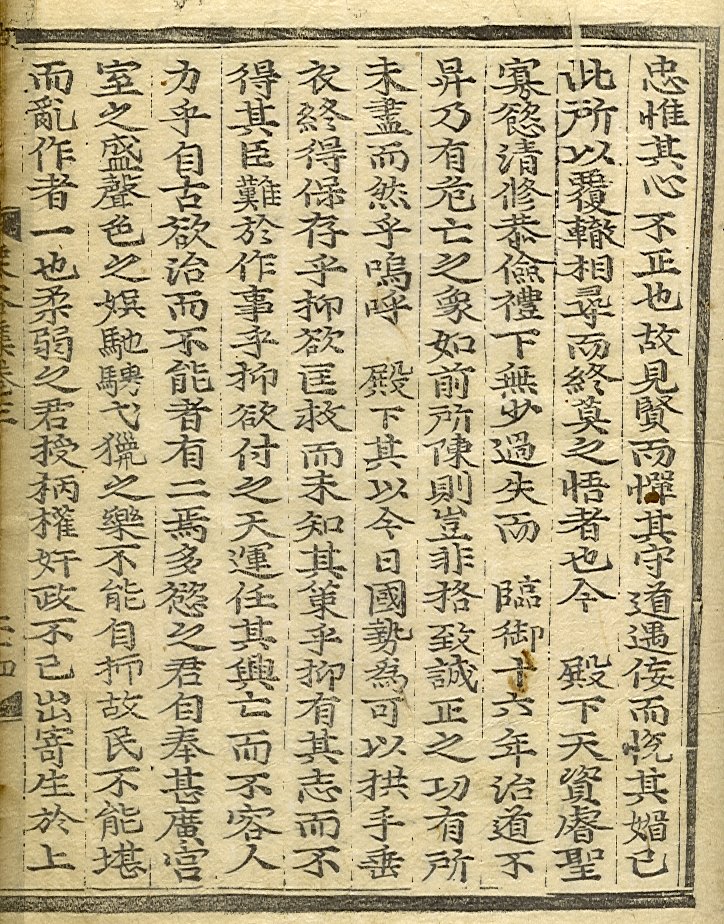 忠惟其心不正也故見賢而憚其守道遇侫而悅其媚己
此所以覆轍相尋而終莫之悟者也今 殿下天資睿聖
寡慾淸修恭儉禮下無少過失而 臨御十六年治道不
昇乃有危亡之象如前所陳則豈非格致誠正之功有所
未盡而然乎嗚呼 殿下其以今日國勢爲可以拱手垂
衣終得保存乎抑欲匡救而未知其策乎抑有其志而不
得其臣難於作事乎抑欲付之天運任其興亡而不容人
力乎自古欲治而不能者有二焉多慾之君自奉甚廣宮
室之盛聲色之娛馳騁弋獵之樂不能自抑故民不能堪
而亂作者一也柔弱之君授柄權奸政不己出寄生於上